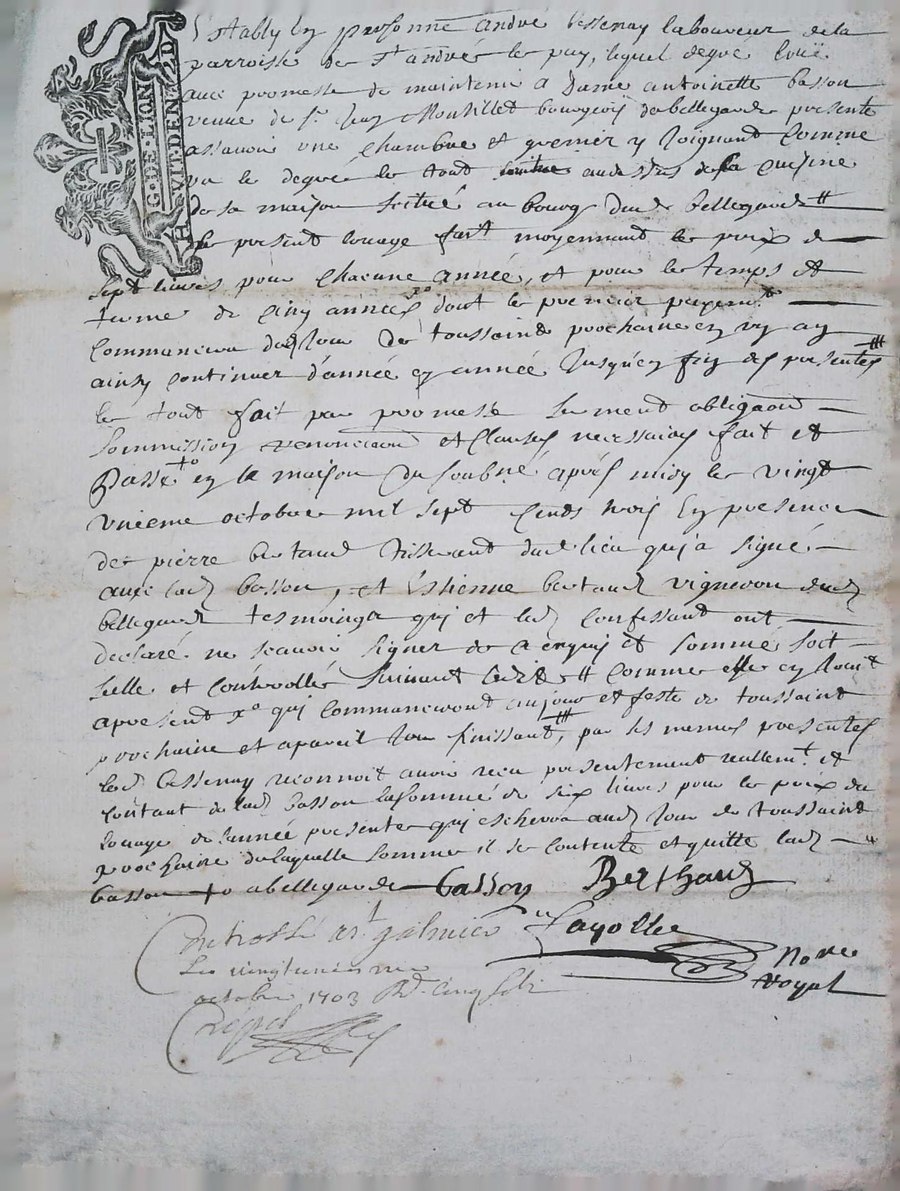 G. DE. LION
HVIT. DEN. 2D
Estably en personne andré bessenay laboureur de la
parroisse de st andré le puy, lequel de gré loüe
avec promesse de maintenir a dame antoinette basson
veuve de sr Jean Montillet bourgeois de bellegarde presente
assavoir une chambre et grenier y Joignant comme
va le degré le tout au dessus de la cuisine
de sa maison scitué au bourg dud bellegarde
le present louage fait moyennant le prix de
sept livres pour chacune année, et pour le temps et
terme de cinq années xo dont le premier payemt
commancera du Jour de toussaint prochaine en un an
ainsy continuer d'année en année Jusqu'en fin des presentes
le tout fait par promesse serment obligaon
sommission renonciaon et clauses necessaires fait et
Passé xo en la maison du soubné après midy le vingt
unieme octobre mil sept cents trois En presence
de pierre bertaud tisserand dud lieu qui a signé
avec lad basson, et Estienne bertaud vigneron dud
bellegarde tesmoings qui et led confessant ont
declaré ne scavoir signer de ce enquis et sommé soit
scellé et controllé suivant l'edit comme elle en Jouit
apresent xo qui commanceront au jour et feste de toussaint
prochaine et a pareil Jour finissant, par les memes presentes
led bessenay reconnoit avoir receu presentement reellemt et
contant de lad basson la somme de six livres pour le prix du
louage de l'année presente qui escherra aud Jour de toussaint
prochaine de laquelle somme il se contente et quitte lad
basson xo a bellegarde basson Berthaud
Controllé a st galmier le Fayolle
Le vingtunieme Nore
octobre 1703 Rd cinq sols Royal